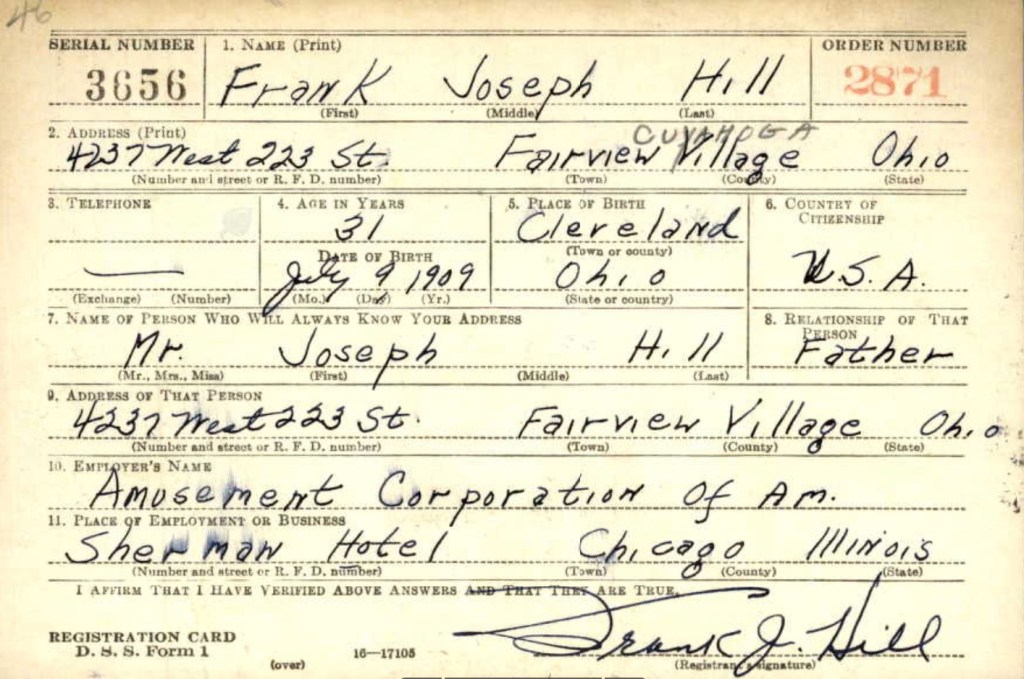 46
SERIAL NUMBER 1. NAME (Print) ORDER NUMBER
3656 Frank Joseph Hill 2871
(First) (Middle) (Last)
2. ADDRESS (Print) CUYAHOGA
4237 West 223 St. Fairview Village Ohio
(Number and street or R. F. D. number) (Town) (County) (State)
3. TELEPHONE 4. AGE IN YEARS 5. PLACE OF BIRTH 6. COUNTRY OF CITIZENSHIP
31 Cleveland
DATE OF BIRTH (Town or county)
— July 9 1909 Ohio U.S.A.
(Exchange) (Number) (Mo.) (Day) (Yr.) (State or country)
7. NAME OF PERSON WHO WILL ALWAYS KNOW YOUR ADDRESS 8. RELATIONSHIP OF THAT PERSON
Mr. Joseph Hill Father
(Mr., Mrs., Miss) (First) (Middle) (Last)
9. ADDRESS OF THAT PERSON
4237 West 223 St. Fairview Village Ohio
(Number and street or R. F. D. number) (Town) (County) (State)
10. EMPLOYER'S NAME
Amusement Corporation Of Am.
11. PLACE OF EMPLOYMENT OR BUSINESS
Sherman Hotel Chicago Illinois
(Number and street or R. F. D. number) (Town) (County) (State)
I AFFIRM THAT I HAVE VERIFIED ABOVE ANSWERS AND THAT THEY ARE TRUE.
REGISTRATION CARD Frank J. Hill
D. S. S. Form 1 (over) 16—17105 (Registrant's signature)